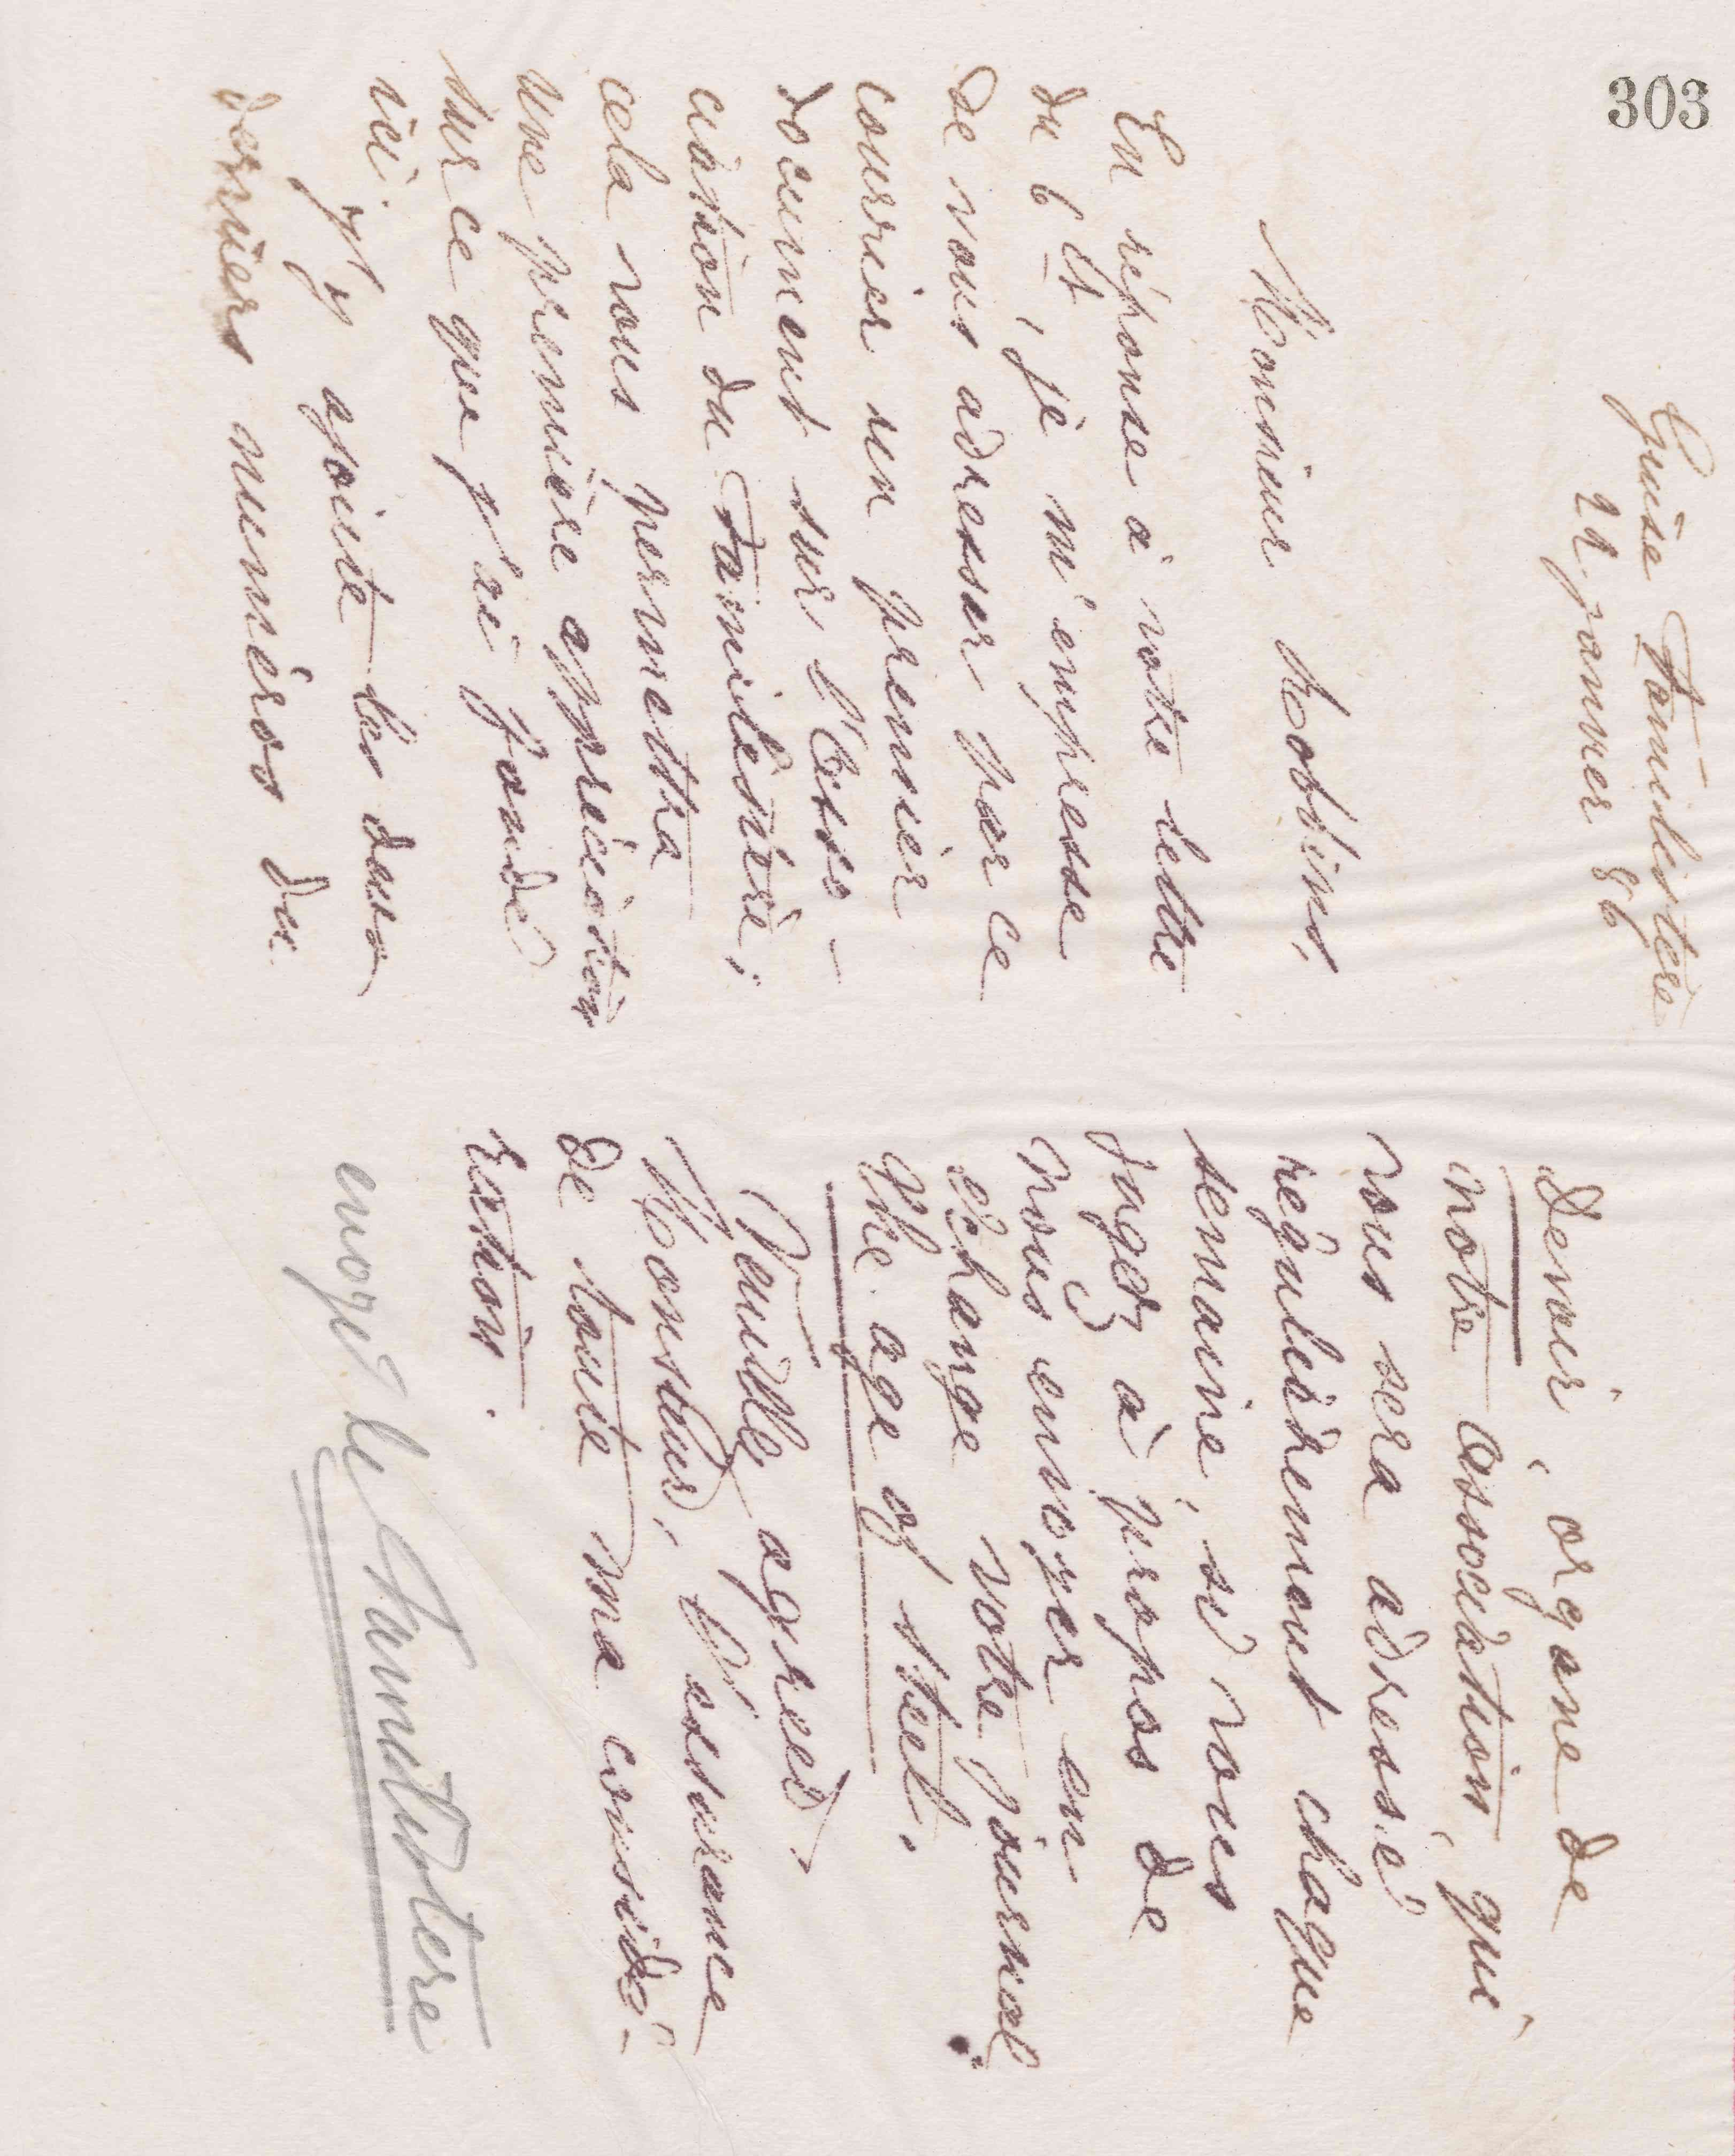 303
Guise Familistère
22 janvier 86
Monsieur Robbins,
En réponse à votre lettre
du 6 ct, je m'empresse
de vous adresser par ce
courrier un premier
document sur l'Asso-
ciation du Familistère;
cela vous permettra
une première appréciation
sur ce que j'ai fondé
ici.
J'y ajoute les deux
derniers numéros du
Devoir, organe de
notre association, qui
vous sera adressé
régulièrement chaque
semaine, si vous
jugez à propos de
nous envoyer en
échange votre journal
The age of steel.
Veuillez agréer,
Monsieur, l'assurance
de toute ma considé-
ration.
envoyé le Familistère